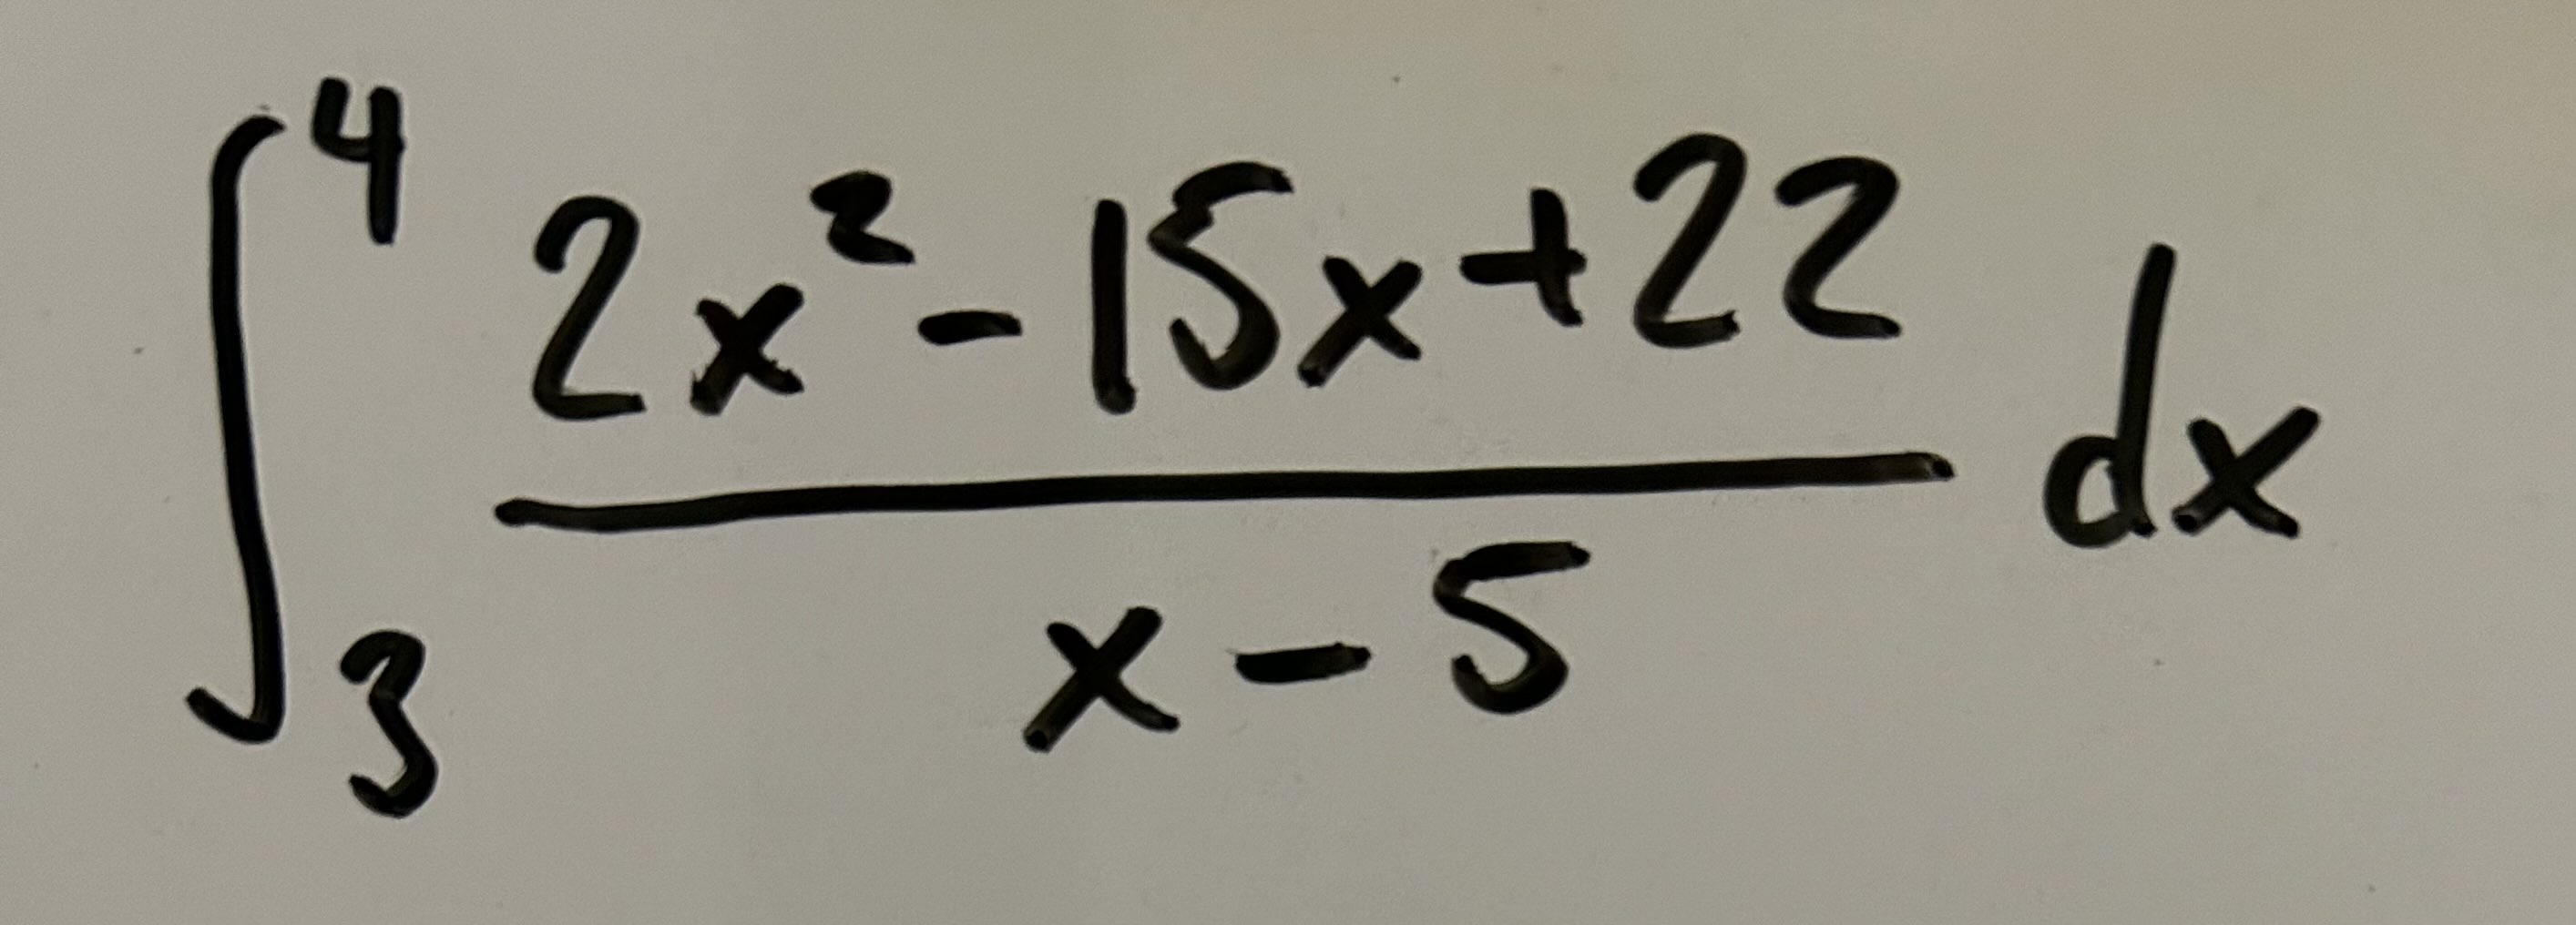 ∫₃⁴ (2x² - 15x + 22)/(x - 5) dx